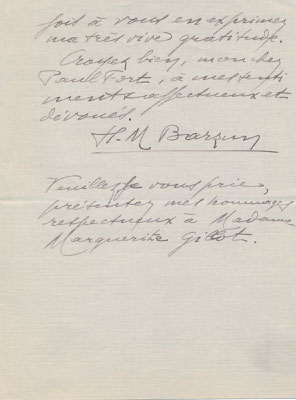 fois à vous en exprimer
ma très vive gratitude.
Croyez bien, mon cher
Paul Fort, à mes senti
ments affectueux et
dévoués.
H.-M Barzun
Veuillez, je vous prie,
présenter mes hommages
respectueux à Madame
Marguerite Gillot.